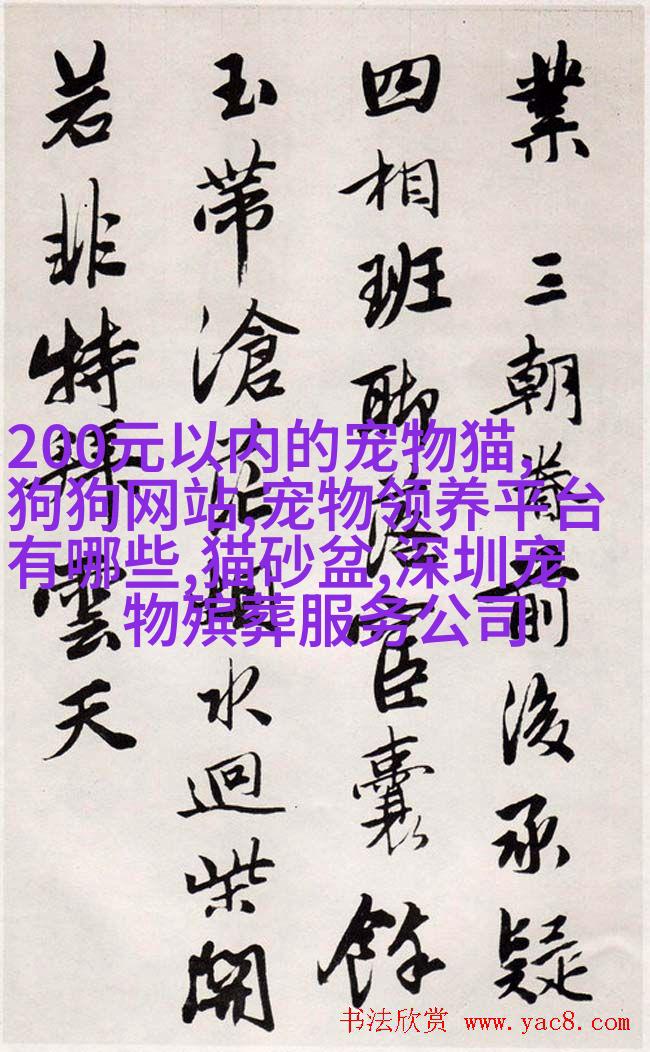 業 三朝前後承疑
四相班聯宦囊餘
玉帶滄水迴柴開
若非特拜雲天
200元以内的宠物猫,
狗狗网站,宠物领养平台
有哪些,猫砂盆,深圳宠
物殡葬服务公司
书法欣赏 www.yac8.com